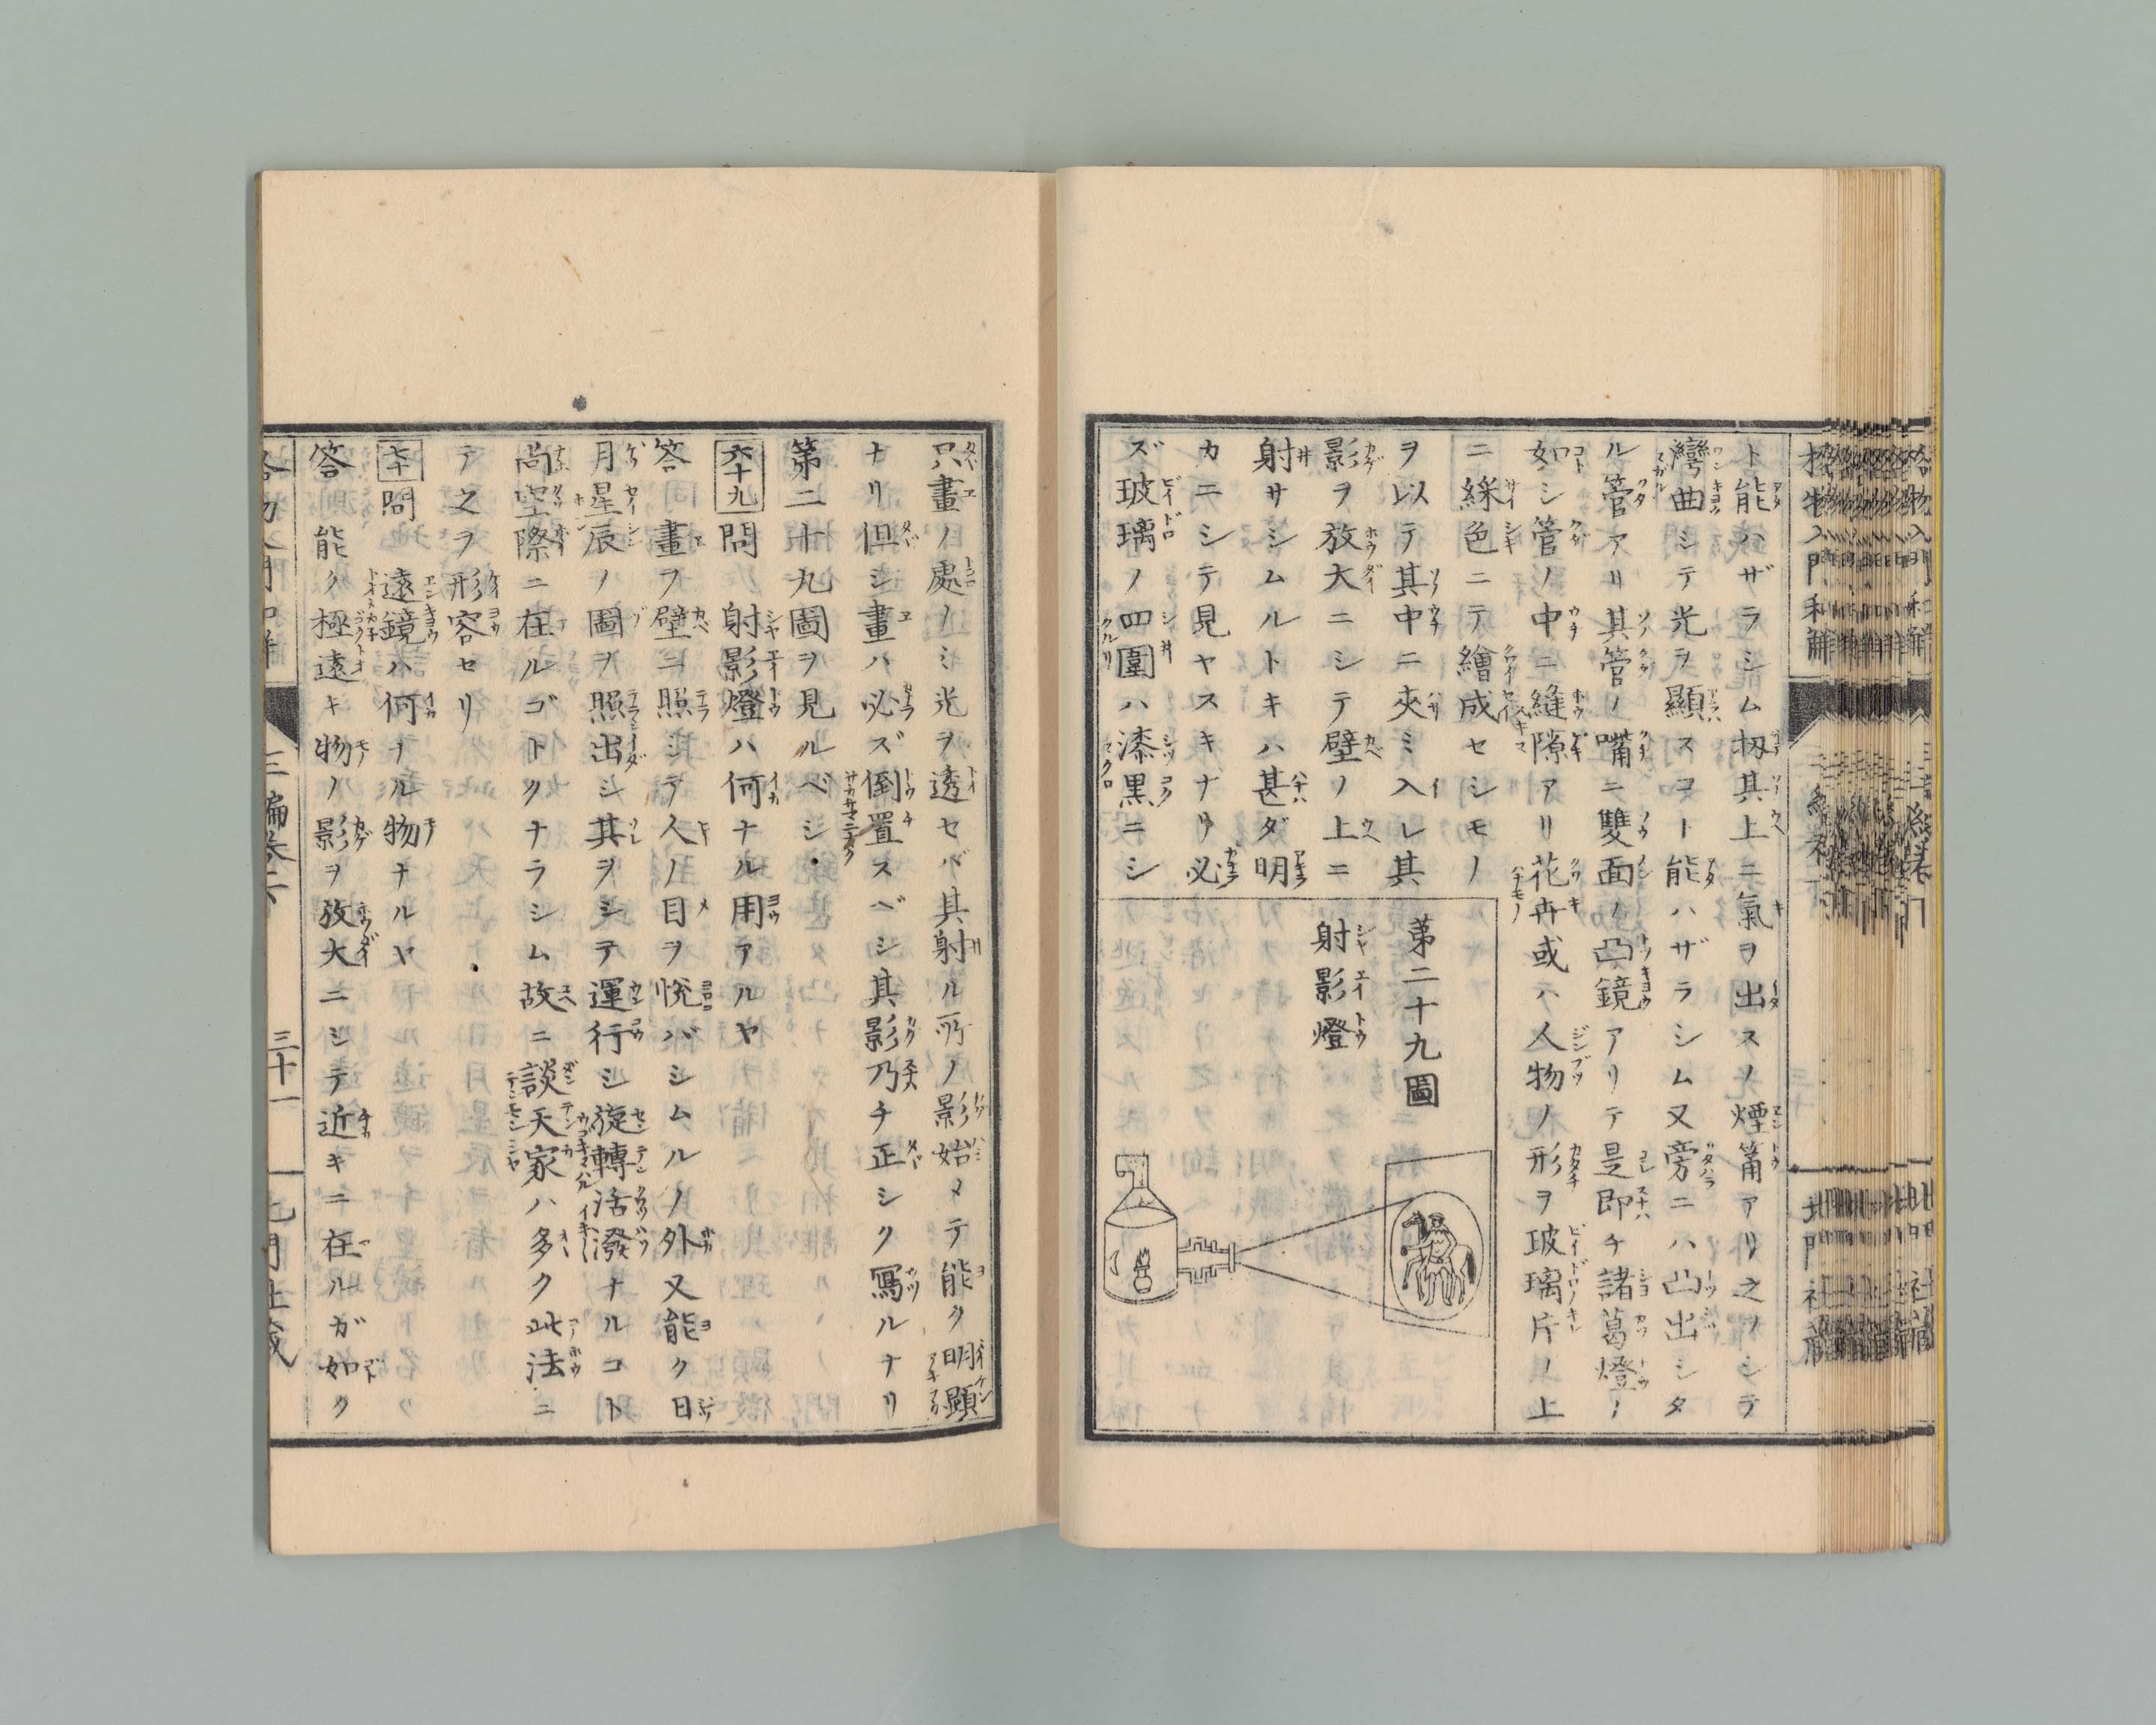 ト能ハザラシム扨其上ニ氣ヲ出スノ煙筩アリ之ヲシテ
彎曲シテ光ヲ顯スコト能ハザラシム又旁ニハ凸出シタ
ル管アリ其管ノ嘴ニ雙面ノ凸鏡アリテ是即チ諸葛燈ノ
如シ管ノ中ニ縫隙アリ花卉或ハ人物ノ形ヲ玻璃片ノ上
ニ綵色ニテ繪成セシモノ
ヲ以テ其中ニ夾ミ入レ其
影ヲ放大ニシテ壁ノ上ニ
射サシムルトキハ甚ダ明
カニシテ見ヤスキナリ必
ズ玻璃ノ四圍ハ漆黒ニシ
第二十九圖
射影燈
只畫ノ處ノミ光ヲ透セバ其射ル所ノ影始メテ能ク明顯
ナリ但シ畫ハ必ズ倒置スベシ其影乃チ正シク寫ルナリ
第二十九圖ヲ見ルベシ
六十九 問 射影燈ハ何ナル用アルヤ
答 畫ヲ壁ニ照シテ人ノ目ヲ悦バシムルノ外又能ク日
月星辰ノ圖ヲ照出シ其ヲシテ運行シ旋轉活潑ナルコト
尚空際ニ在ルゴトクナラシム故ニ談天家ハ多ク此法ニ
テ之ヲ形容セリ
七十 問 遠鏡ハ何ナル物ナルヤ
答 能ク極遠キ物ノ影ヲ放大ニシテ近キニ在ルガ如ク
三編卷下
三十一